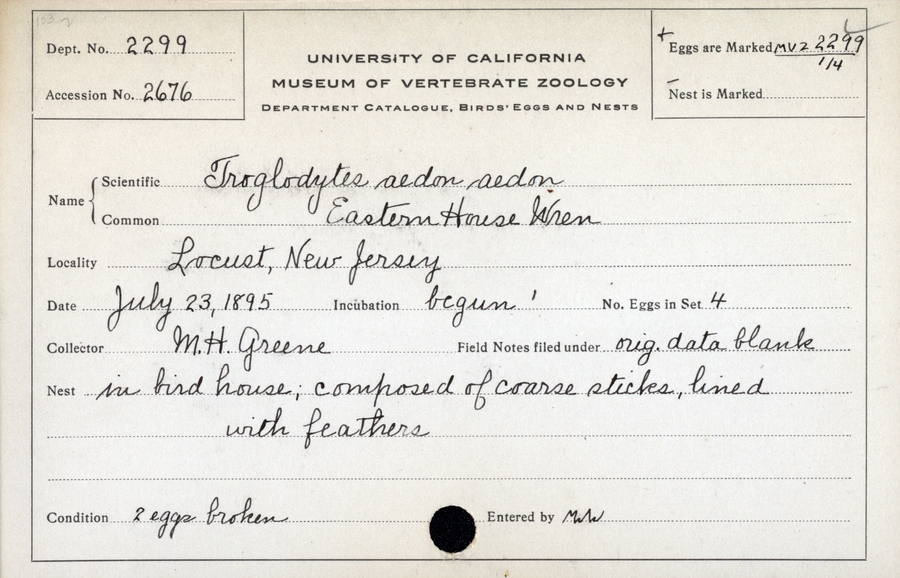 Dept. No. 2299
Accession No. 2676
UNIVERSITY OF CALIFORNIA
MUSEUM OF VERTEBRATE ZOOLOGY
DEPARTMENT CATALOGUE, BIRDS' EGGS AND NESTS
+ Eggs are Marked MVZ 2299
1/4
- Nest is Marked
Name
Scientific Troglodytes aedon aedon
Common Eastern House Wren
Locality Locust, New Jersey
Date July 23, 1895 Incubation begun No. Eggs in Set 4
Collector M.H. Greene Field Notes filed under orig. data blank
Nest in bird house; composed of coarse sticks, lined
with feathers
Condition 2 eggs broken Entered by